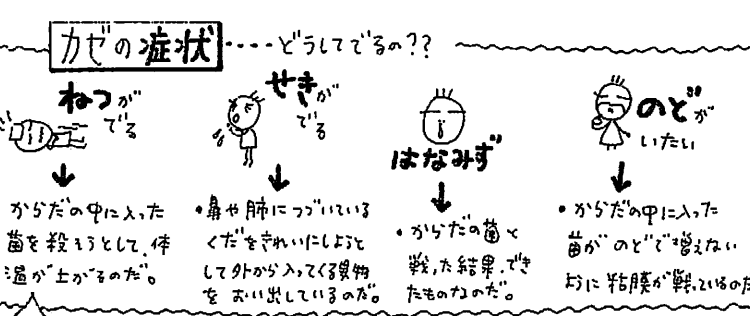 カゼの症状・・・・どうしてでるの??
ねつが
でる
からだの中に入った
菌を殺そうとして、体
温が上がるのだ。
せきが
でる
・鼻や肺につづいている
くだをきれいにしようと
して外から入ってくる異物
をおい出しているのだ。
はなみず
・からだの菌と
戦った結果、でき
たものなのだ。
のどが
いたい
・からだの中に入った
菌がのどで増えない
ように粘膜が戦っているのだ